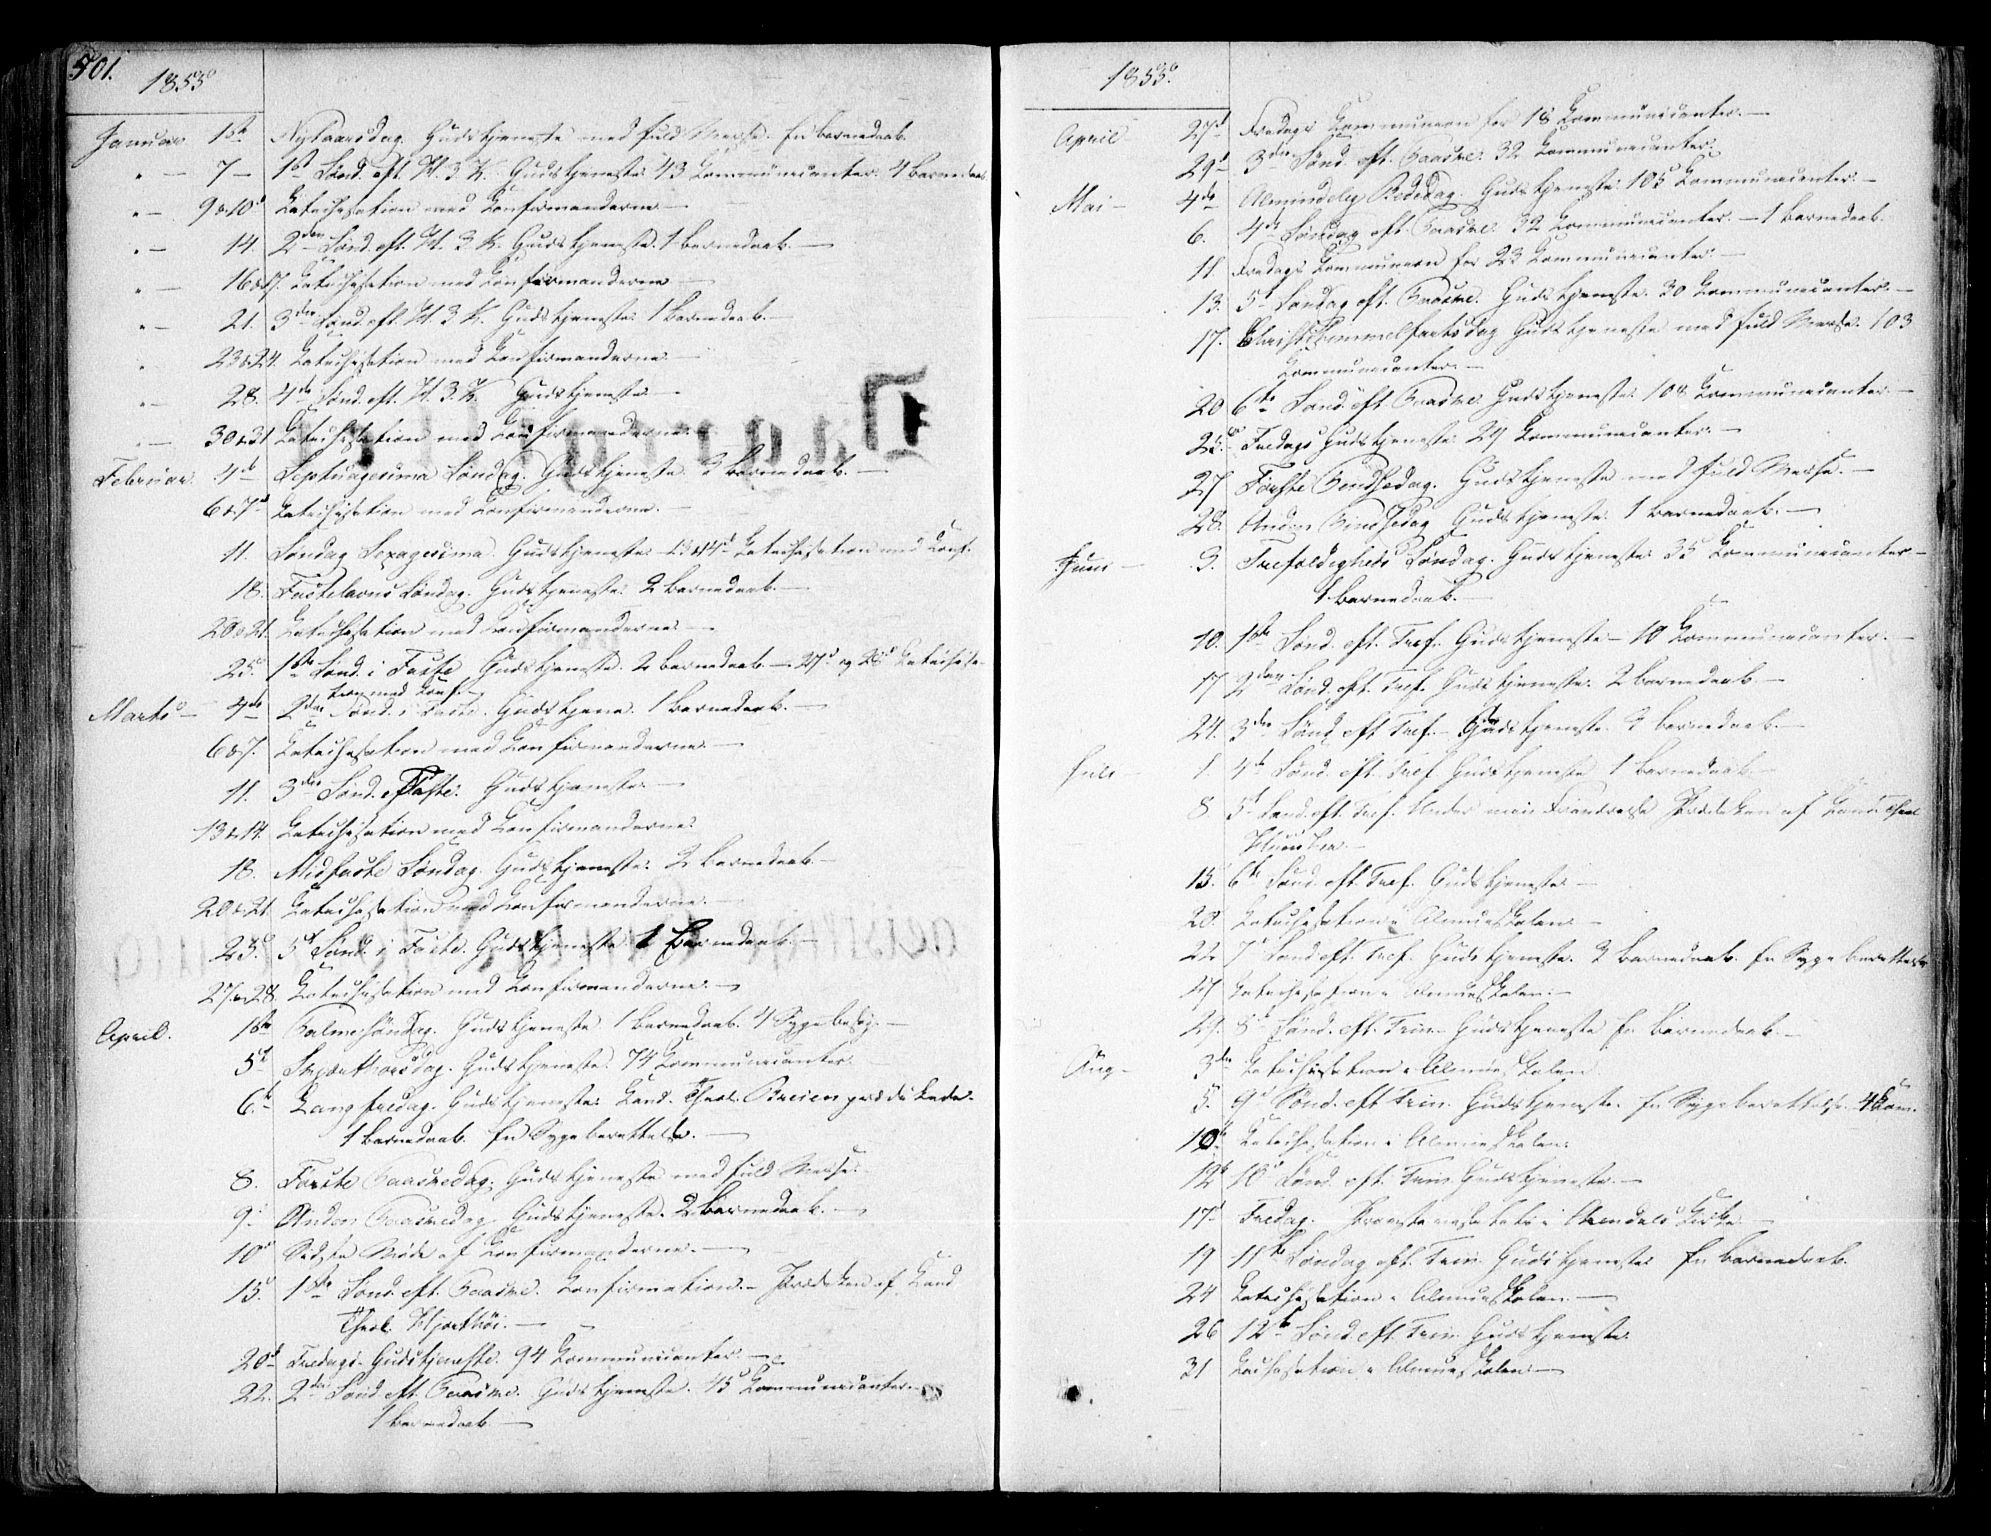 501.
1855
Januar 1ste Nytaarsdag. Gudstjeneste med fuld Messe. En Barnedaab.
" — 7 — 1st Sønd. eft. H. 3 K. Gudstjeneste. 43 Communicanter. 4 Barnedaab
" — 9 & 10d Catechisation med Confirmanderne —
" — 14. 2den Sønd. eft. H. 3 K. Gudstjeneste. 1 Barnedaab. —
" — 16 & 17. Catechisation med Confirmanderne —
" — 21. 3die Sønd. eft. H. 3 K. Gudstjeneste. 1 Barnedaab. —
" 23 & 24. Catechisation med Confirmanderne. —
" — 28. 4de Sønd. eft. H. 3. K. Gudstjeneste —
" — 30 & 31 Catechisation med Confirmanderne.
Februar 4de Septuagesima Søndag. Gudstjeneste. 3 Barnedaab. —
6 & 7d Catechisation med Confirmanderne. —
11. Søndag Sexagesima. Gudstjeneste — 13 & 14d Catechisation med Conf.
18. Fastelavns Søndag. Gudstjeneste. 2 Barnedaab. —
20 & 21. Catechisation med Confirmanderne —
25d 1ste Sønd. i Faste. Gudstjeneste. 2 Barnedaab. — 27d og 28d Catechisa-
tion med Conf. —
Marts — 4de 2den Sønd. i Faste. Gudstjene. 1 Barnedaab. —
6 & 7. Catechisation med Confirmanderne. —
11. 3die Sønd. i Faste. Gudstjeneste. —
13 & 14. Catechisation med Confirmanderne.
18. Midfaste Søndag. Gudstjeneste. 2 Barnedaab. —
20 & 21. Catechisation med Confirmanderne. —
25d. 5d Sønd. i Faste. Gudstjeneste. 1 Barnedaab. —
27 & 28. Catechisation med Confirmanderne. —
April. 1ste Palmesøndag. Gudstjeneste 1 Barnedaab. 4 Sygebesøg. —
5d Skjærthorsdag. Gudstjeneste. 74 Communicanter.
6d Langfredag. Gudstjeneste. Cand. Theol. Breien prædikede.
1 Barnedaab. En Sygeberettelse. —
8. Første Paaskedag. Gudstjeneste med fuld Messe.
9d Anden Paaskedag Gudstjeneste. 2 Barnedaab. —
10d Sidste Møde af Confirmanderne. —
15d. 1ste Sønd. eft. Paaske. Confirmation. — Prædiken af Cand
Theol. Hjorthöi. —
20d Fredags-Gudstjeneste. 94 Communicanter. —
22. 2den Sønd eft. Paaske. Gudstjeneste. 45 Communicanter. —
1 Barnedaab. —
1855.
April — 27d Fredags Communion for 18 Communicanter. —
29d 3die Sønd. eft. Paaske. 32 Communicanter.
Mai — 4de Almindelig Bededag. Gudstjeneste. 105 Communicanter. —
6. 4de Søndag eft. Paaske. 32 Communicanter. — 1 Barnedaab.
11. Fredags Communion for 23 Communicanter. —
13. 5d Søndag eft. Paaske. Gudstjeneste. 30 Communicanter. —
17. Christi Himmelfartsdag Gudstjeneste med fuld Messe. 103
Communicanter. —
20 6te Sønd. eft. Paaske Gudstjeneste. 108 Communicanter. —
25. Fredags Gudstjeneste. 24 Communicanter. —
27 Første Pindsedag. Gudstjeneste med fuld Messe. —
28. Anden Pindsedag Gudstjeneste. 1 Barnedaab. —
Juni — 3. Trefoldigheds Søndag. Gudstjeneste. 35 Communicanter —
1 Barnedaab. —
10. 1ste Sønd. eft. Tref. Gudstjeneste — 10 Communicanter. —
17 2den Sønd. eft. Tref. Gudstjeneste. 2 Barnedaab —
24. 3die Sønd. eft. Tref. — Gudstjeneste. 3 Barnedaab. —
Juli 1 4de Sønd. eft. Tref Gudstjeneste 1 Barnedaab. —
8 5d Sønd. eft. Tref. Under min Fraværelse Prædiken af Cand. Theol
15. 6te Sønd. eft. Tref. Gudstjeneste —
20. Catechisation i Almueskolen —
22. 7d Sønd eft. Tref. Gudstjeneste. 3 Barnedaab. En Sygeberettelse
27 Catechisation i Almueskolen. —
29. 8d Sønd. eft. Trin. Gudstjeneste En Barnedaab —
Aug — 3die Catechisation i Almueskolen
5. 9d Sønd. eft Trin. Gudstjeneste. En Sygeberettelse 4 Com.
10de Catechisation i Almueskolen.
12d 10d Sønd. eft. Trin. Gudstjeneste. —
17d Fredag. Provstevisitats i Arendals Kirke —
19 11te Søndag eft. Trin. Gudstjeneste En Barnedaab.
24 Catechisation i Almueskolen. —
26 12te Sønd. eft. Trin. Gudstjeneste.
31 Cathesation i Almueskolen. —